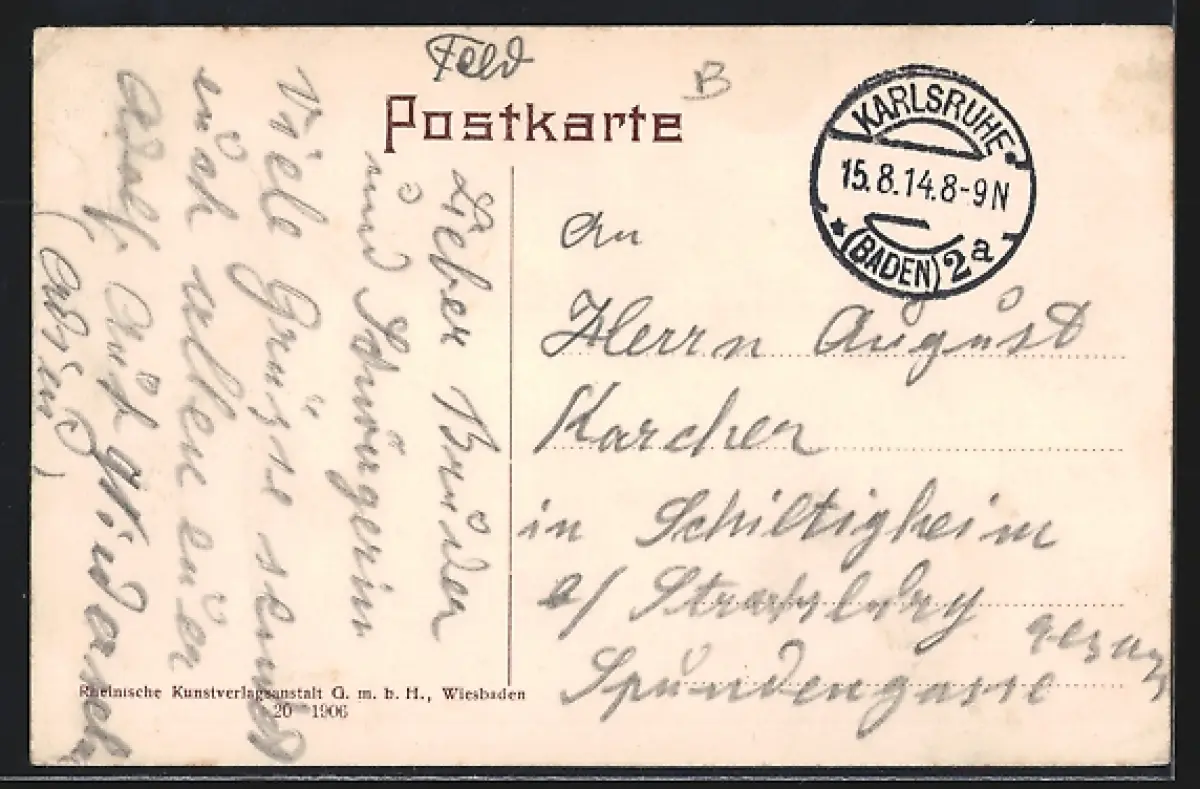 Feld
B
Postkarte
KARLSRUHE
15.8.14.8-9N
(BADEN) 2a
Lieber Bruder
und Schwägerin
Viele Grüsse sendet
euch allen euer
Adolf
An
Herrn August
Karcher
in Schiltigheim
b/ Strassburg
Spundengasse
Rheinische Kunstverlagsanstalt G. m. b. H., Wiesbaden
20 1906